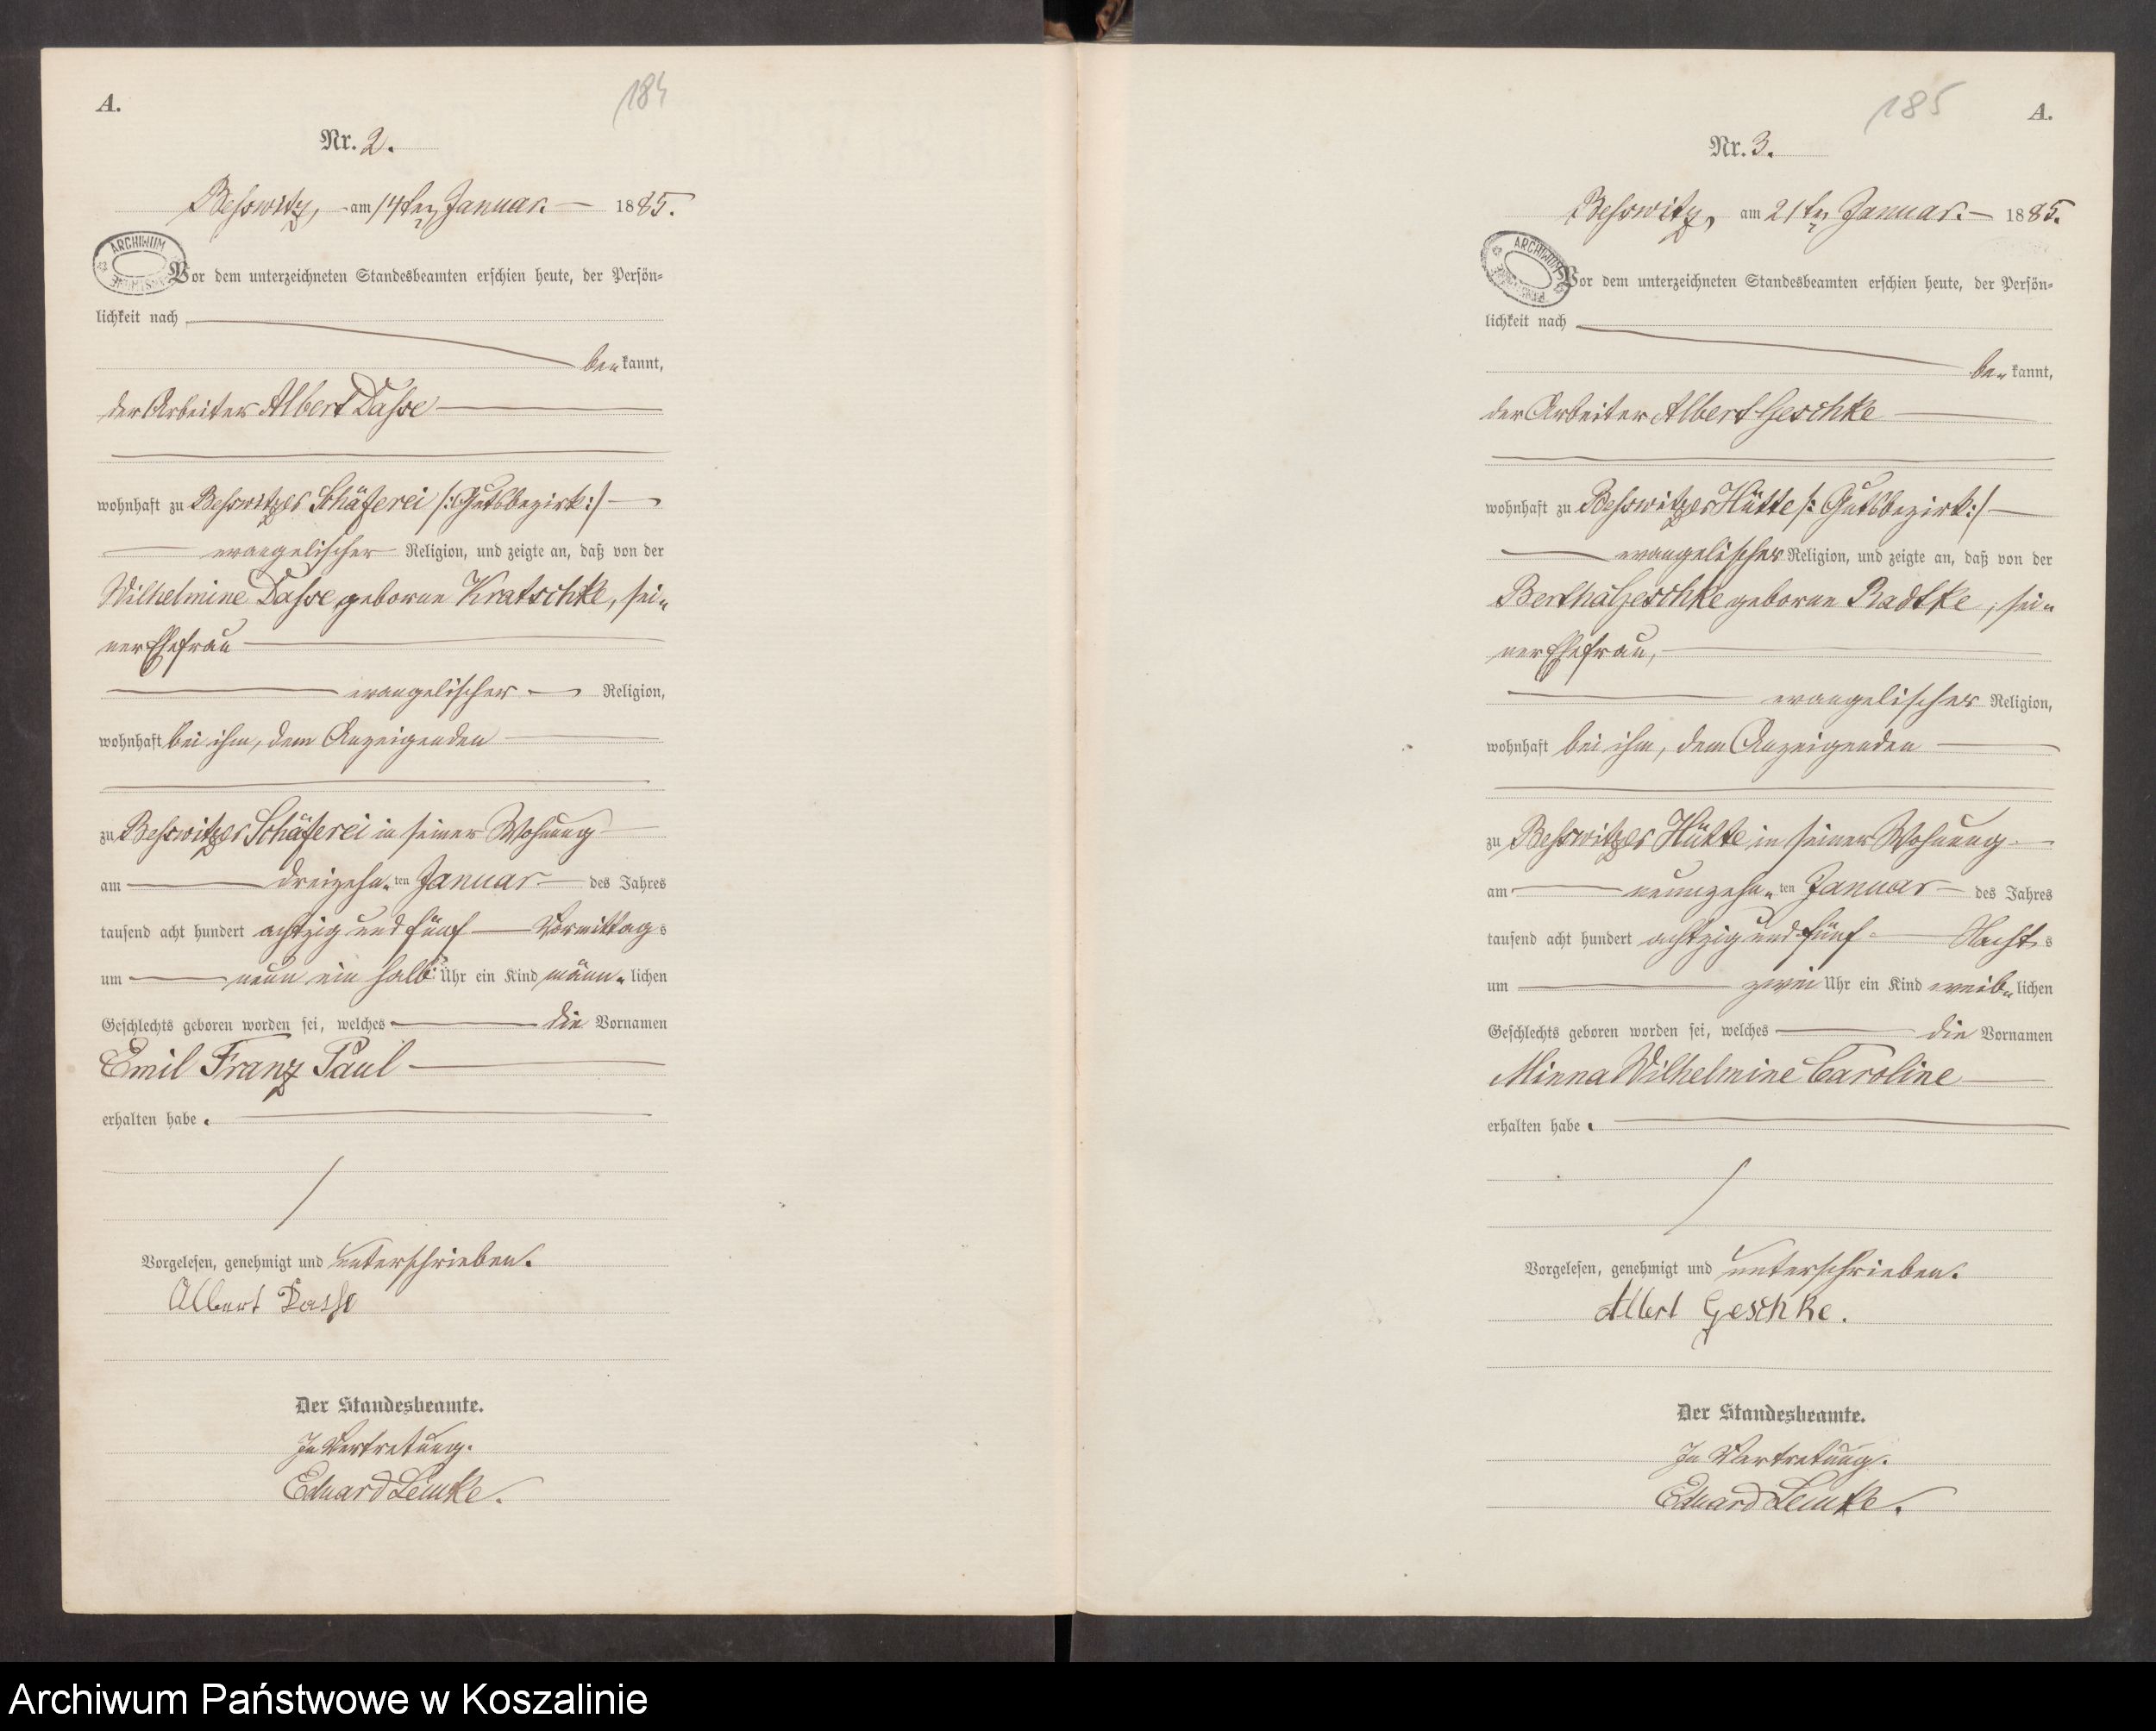 A.
184
Nr. 2.
Beßwitz, am 14ten Januar 1885.
ARCHIWUM
Vor dem unterzeichneten Standesbeamten erschien heute, der Persön-
lichkeit nach
be- kannt,
der Arbeiter Albert Dasse
wohnhaft zu Beßwitzer Schäferei /: Gutsbezirk :/
evangelischer Religion, und zeigte an, daß von der
Wilhelmine Dasse geborne Kratschke, sei-
ner Ehefrau
evangelischer Religion,
wohnhaft bei ihm, dem Anzeigenden
zu Beßwitzer Schäferei in seiner Wohnung
am dreizehn-ten Januar des Jahres
tausend acht hundert achtzig und fünf Vormittags
um neun ein halb Uhr ein Kind männ-lichen
Geschlechts geboren worden sei, welches die Vornamen
Emil Franz Paul
erhalten habe.
Vorgelesen, genehmigt und unterschrieben.
Albert Dasse
Der Standesbeamte.
In Vertretung.
Eduard Lemke.
185
A.
Nr. 3.
Beßwitz, am 21ten Januar. 1885.
ARCHIWUM
Vor dem unterzeichneten Standesbeamten erschien heute, der Persön-
lichkeit nach
be- kannt,
der Arbeiter Albert Geschke
wohnhaft zu Beßwitzer Hütte /: Gutsbezirk :/
evangelischer Religion, und zeigte an, daß von der
Bertha Geschke geborne Radtke, sei-
ner Ehefrau,
evangelischer Religion,
wohnhaft bei ihm, dem Anzeigenden
zu Beßwitzer Hütte in seiner Wohnung
am neunzehn-ten Januar des Jahres
tausend acht hundert achtzig und fünf Nachts
um zwei Uhr ein Kind weib-lichen
Geschlechts geboren worden sei, welches die Vornamen
Minna Wilhelmine Caroline
erhalten habe.
Vorgelesen, genehmigt und unterschrieben.
Albert Geschke.
Der Standesbeamte.
In Vertretung.
Eduard Lemke.
Archiwum Państwowe w Koszalinie